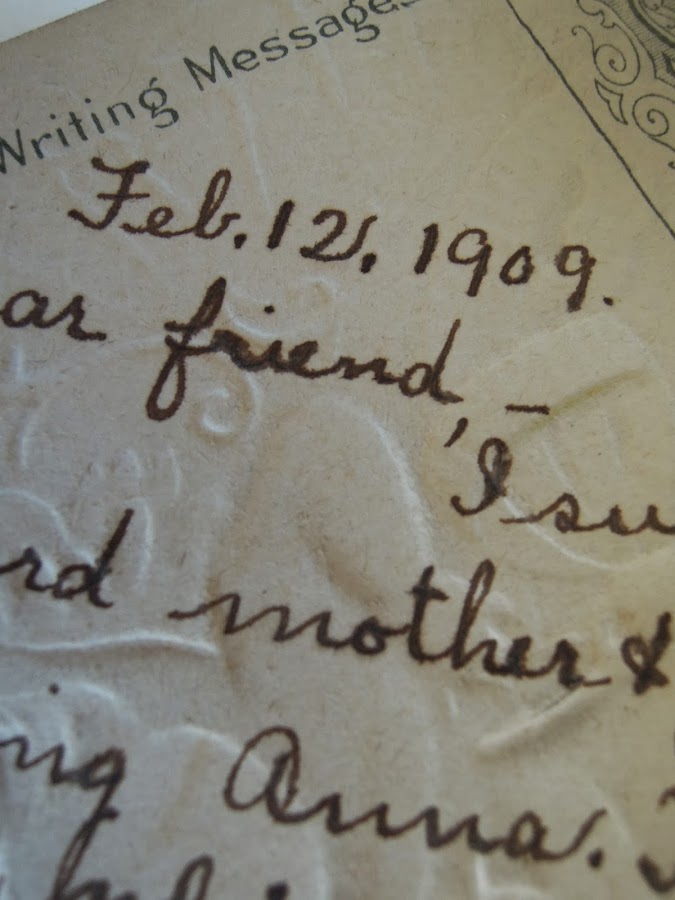 Writing Messages
Feb. 12, 1909.
ar friend, –
I su
rd mother &
ng Anna.